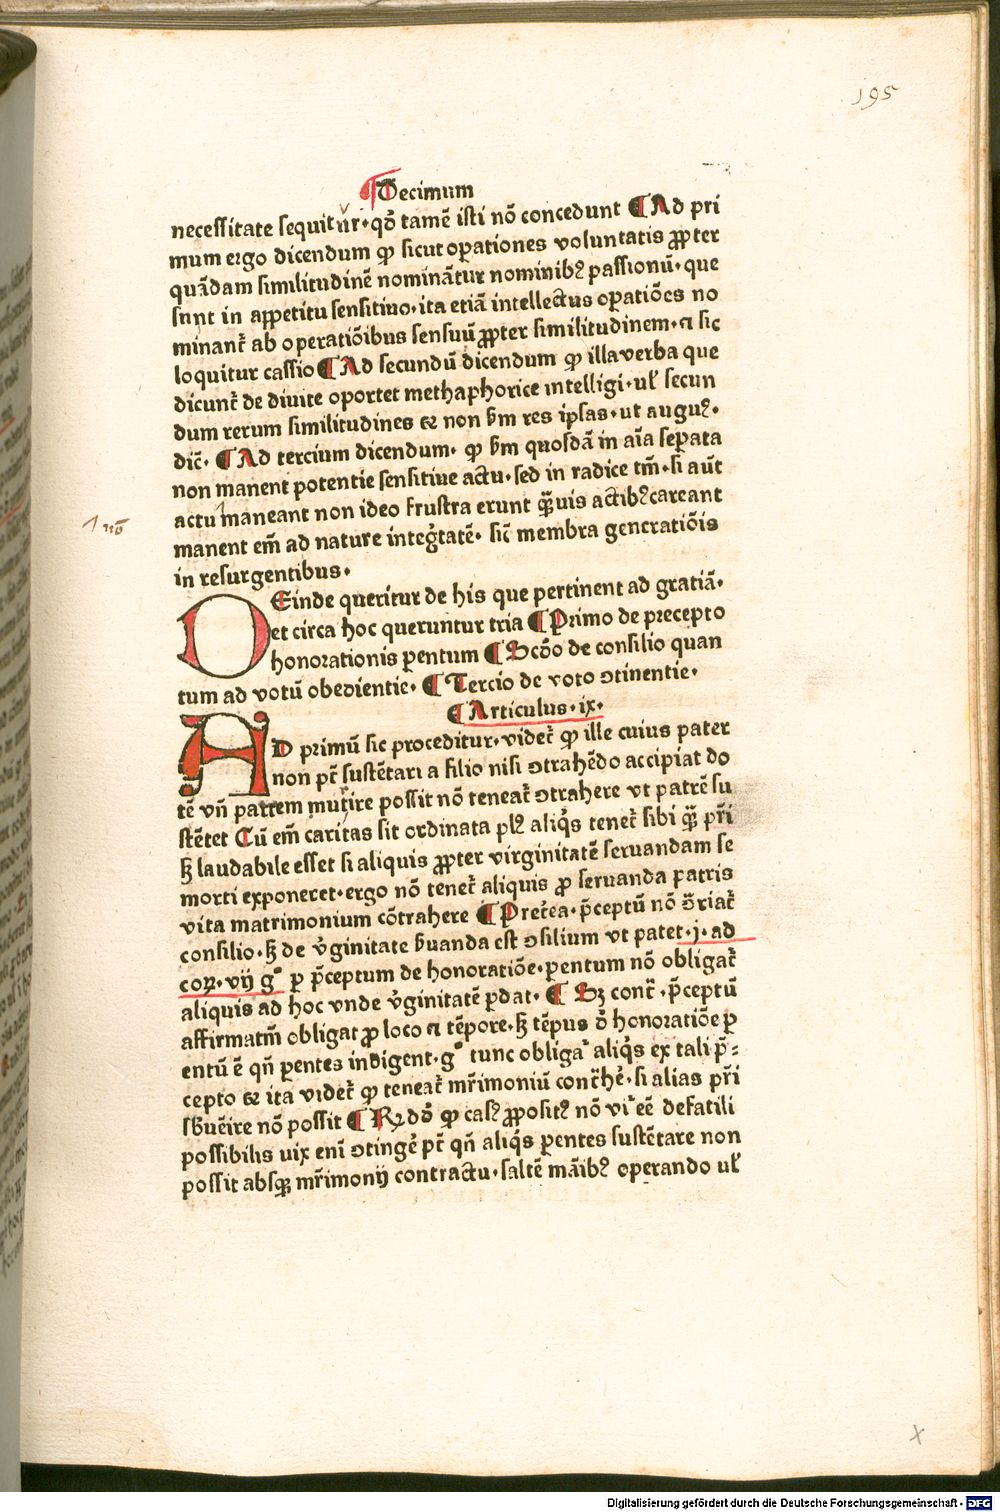 195
¶Decimum
necessitate sequitur·qđ tamē isti nō concedunt ¶Ad pri
mum ergo dicendum ꝙ sicut oꝑationes voluntatis ꝓpter
quādam similitudinē nominātur nominibꝰ passionū·que
sunt in appetitu sensitiuo·ita etiā intellectus oꝑatiōes no
minant᷑ ab operatiōibus sensuū ꝓpter similitudinem·⁊ sic
loquitur cassio ¶Ad secundū dicendum ꝙ illa verba que
dicunt᷑ de diuite oportet methaphorice intelligi·ul̕ secun
dum rerum similitudines & non ẜm res ipsas·ut auguꝰ·
dic̄· ¶Ad tercium dicendum· ꝙ ẜm quosdā in aīa seꝑata
non manent potentie sensitiue actu·sed in radice tm̄·si aūt
actu maneant non ideo frustra erunt qͣ̄uis actibꝰ careant
manent em̄ ad nature integͬtatē· sic̄ membra generatiōis
in resurgentibus·
DEinde queritur de his que pertinent ad gratiā·
et circa hoc queruntur tria ¶Primo de precepto
honorationis parentum ¶Scđo de consilio quan
tum ad votū obedientie· ¶Tercio de voto ↄtinentie·
¶Articulus·ix·
AD primū sic proceditur·videt᷑ ꝙ ille cuius pater
non pt̄ sustētari a filio nisi ↄtrahēdo accipiat do
tē vn̄ patrem nutrire possit nō teneat᷑ ↄtrahere vt patrē su
stētet Cū em̄ caritas sit ordinata plꝰ aliqͥs tenet᷑ sibi qͣ̄ pr̄i
ꝫ laudabile esset si aliquis ꝓpter virginitatē seruandam se
morti exponeret·ergo nō tenet᷑ aliquis ꝓ seruanda patris
vita matrimonium cōtrahere ¶Pret᷑ea·p̄ceptū nō ↄ̄riat᷑
consilio·ꝫ de vͥginitate ẜuanda est ↄsilium vt patet·j·ad
coꝝ·vij gͦ ꝑ p̄ceptum de honoratiōe·ꝑentum nō obligat᷑
aliquis ad hoc vnde vͥginitatē ꝑdat· ¶ Sꝫ cont᷑·p̄ceptū
affirmatm̄ obligat ꝓ loco ⁊ tēpore·ꝫ tēpus đ honoratiōe ꝑ
entū ē qn̄ ꝑentes indigent·gͦ tunc obligat᷑ aliqͥs ex tali p̄⸗
cepto & ita videt᷑ ꝙ teneat᷑ mr̄imoniū cont᷑he᷑·si alias pr̄i
sbuēire nō possit ¶R̄dō ꝙ casꝰ ꝓpositꝰ nō vi᷑ eē defatili
possibilis uix enī ↄtinge᷑ pt̄ qn̄ aliqͥs ꝑentes sustētare non
possit absqꝫ mr̄imonij contractu·saltē māibꝰ operando ul̕
Digitalisierung gefördert durch die Deutsche Forschungsgemeinschaft - DFG